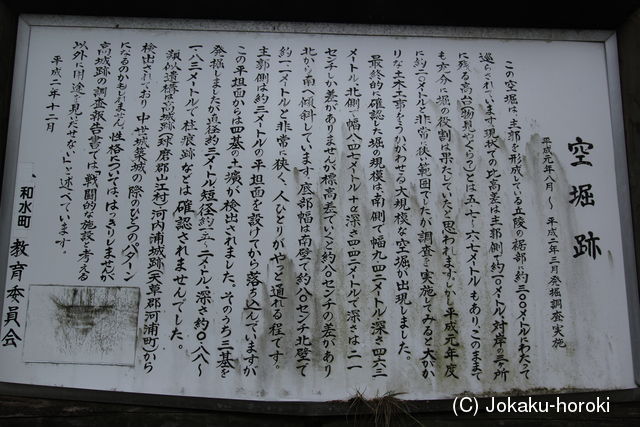 空堀跡
平成元年八月～平成二年三月発掘調査実施
この空堀は、主郭を形成している丘陵の裾部に約三〇〇メートルにわたって
巡らされています。現状での比高差は主郭側で約一〇メートル、対岸の三ヶ所
に残る高台(物見やぐら)とは五・七～六・七メートルもあり、このままで
も充分に堀の役割は果たしていたと思われます。しかし平成元年度
に約二〇メートルと非常に狭い範囲でしたが、調査を実施してみると大がか
りな土木工事をうかがわせる大規模な空堀が出現しました。
最終的に確認した堀の規模は、南側で幅九・四二メートル、深さ四・六三
メートル、北側で幅八・四七メートル+α、深さ四・六二メートルで深さは二一
センチしか差がありませんが、標高差でいくと約八〇センチの差があり
北から南へ傾斜しています。底部幅は南壁で約八〇センチ、北壁で
約一一メートルと非常に狭く、人ひとりがやっと通れる程です。
主郭側は約三メートルの平坦面を設けてから落ち込んでいますが
この平坦面からは四基の土壙が検出されました。そのうち三基を
発掘しましたが、直径約二メートル、短径約五～二メートル、深さ約〇・八八～
一・八三メートルで柱痕跡などは確認されませんでした。
類似遺構は高城跡(球磨郡山江村)、河内浦城跡(天草郡河浦町)から
検出されており、中世城築城の際のひとつのパターン
になるのかもしれません。性格については、はっきりしませんが
高城跡の調査報告書では「戦闘的な施設と考える
以外に用途を見いだせない」と述べています。
平成二年十二月
和水町 教育委員会
(C) Jokaku-horoki